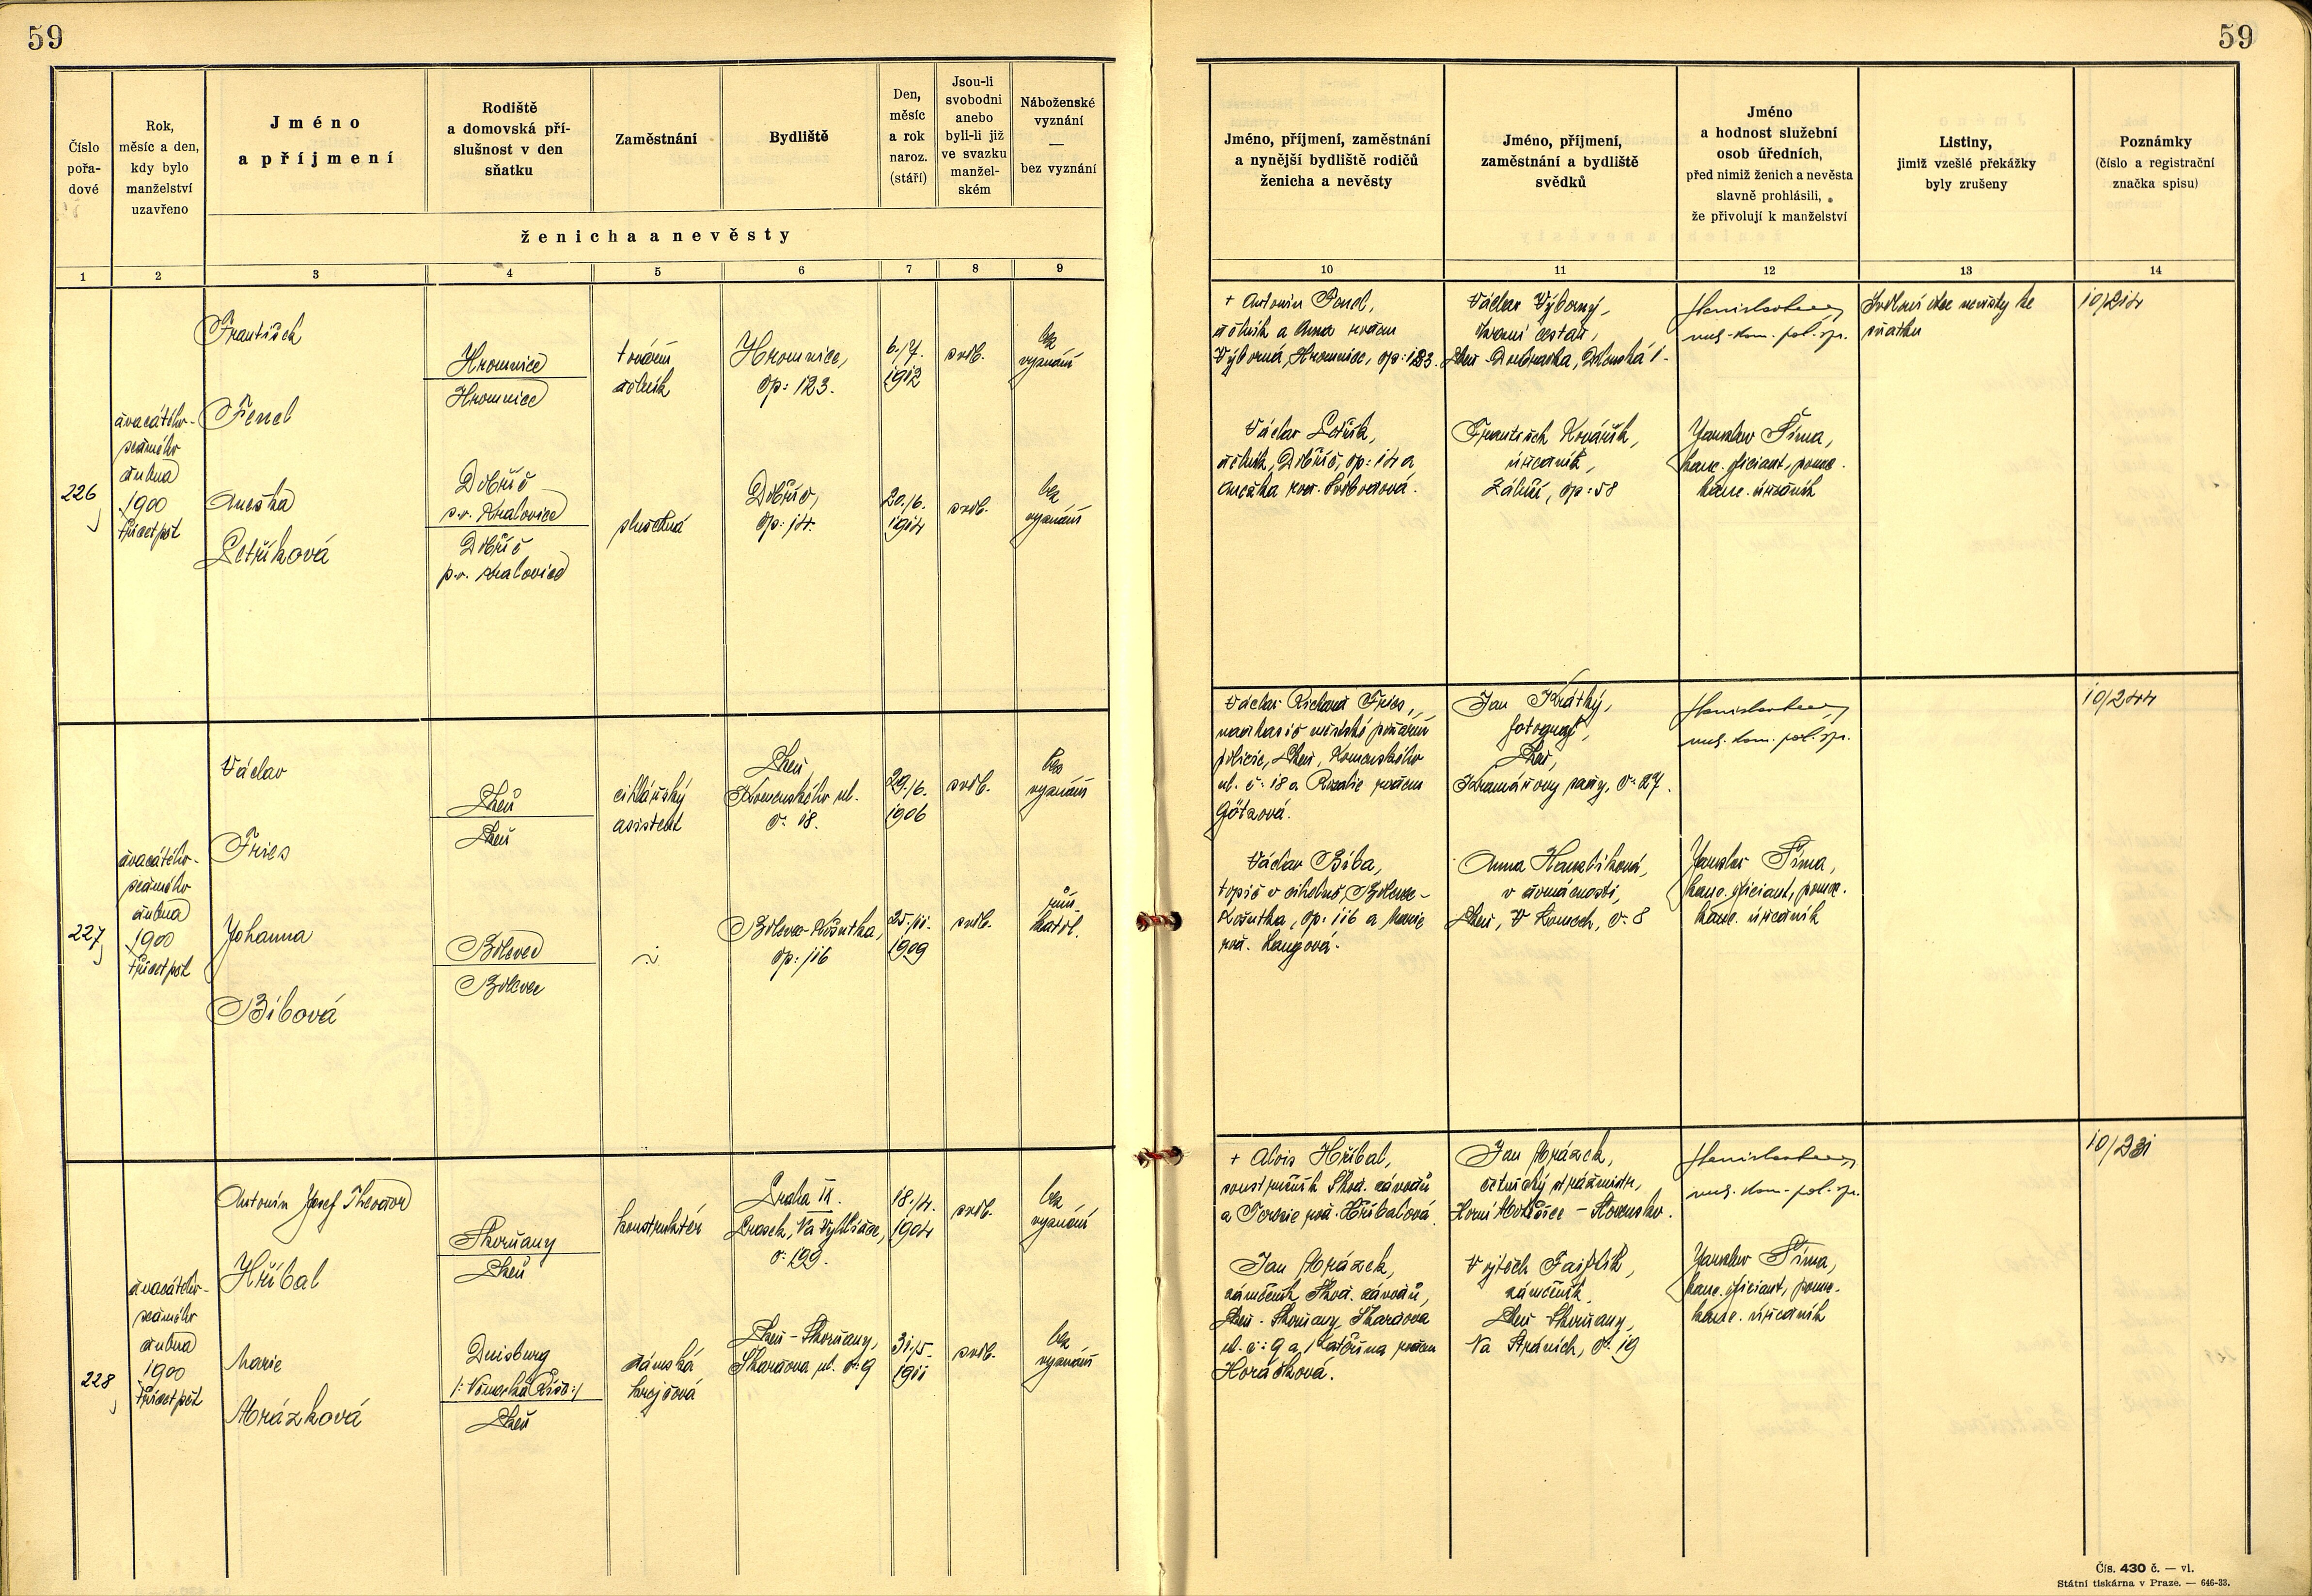 59
59
Číslo pořa-dové
Rok, měsíc a den, kdy bylo manželství uzavřeno
Jméno a příjmení
Rodiště a domovská pří-slušnost v den sňatku
Zaměstnání
Bydliště
Den, měsíc a rok naroz. (stáří)
Jsou-li svobodni anebo byli-li již ve svazku manžel-ském
Náboženské vyznání — bez vyznání
ženicha a nevěsty
Jméno, příjmení, zaměstnání a nynější bydliště rodičů ženicha a nevěsty
Jméno, příjmení, zaměstnání a bydliště svědků
Jméno a hodnost služební osob úředních, před nimiž ženich a nevěsta slavně prohlásili, že přivolují k manželství
Listiny, jimiž vzešlé překážky byly zrušeny
Poznámky (číslo a registrační značka spisu)
1 2 3 4 5 6 7 8 9 10 11 12 13 14
226
dvacátého-
sedmého
dubna
1900
třicet pět
František
Fencl
Hromnice
Hromnice
tovární
dělník
Hromnice,
čp: 123.
6./7.
1912
svob.
bez
vyznání
Anežka
Petříková
Dobříč
p.o. Kralovice
Dobříč
p.o. Kralovice
služebná
Dobříč,
čp: 14.
20./6.
1914
svob.
bez
vyznání
+ Antonín Fencl,
dělník a Anna rozem
Výborná, Hromnice, čp: 123.
Václav Petřík,
dělník, Dobříč, čp: 14 a
Anežka roz. Svobodová.
Václav Výborný,
Plzeň-Doubravka,
František Kovářík,
úředník,
Záluží, čp: 58
Jaroslav Šíma,
kanc. oficiant, pomoc.
kanc. úředník
Svolení otce nevěsty ke
sňatku
10/214
227
dvacátého-
sedmého
dubna
1900
třicet pět
Václav
Fries
Plzeň
Plzeň
cihlářský
asistent
Plzeň
Komenského ul.
č: 18.
29./6.
1906
svob.
bez
vyznání
Johanna
Bíbová
Bolevec
Bolevec
Bolevec-Košutka,
čp: 116
25./11.
1909
svob.
řím.
katol.
Václav Richard Fries,
nadhasič městské požární
policie, Plzeň, Komenského
ul. č: 18 a Rozalie rozem
Götzová.
Václav Bíba,
topič v cihelně, Bolevec-
Košutka, čp: 116 a Marie
roz. Langová.
Jan Krátký,
fotograf,
Plzeň,
Kramářovy sady, č: 27.
Anna Hanzlíková,
v domácnosti,
Plzeň, V Lomech, č: 8
Jaroslav Šíma,
kanc. oficiant, pomoc.
kanc. úředník
10/244
228
dvacátého-
sedmého
dubna
1900
třicet pět
Antonín Josef Theodor
Hříbal
Skvrňany
Plzeň
konstruktér
Praha IX.
Prosek, Na Vyhlídce,
č: 199.
18./4.
1904
svob.
bez
vyznání
Marie
Mrázková
Duisburg
/: Německá Říše :/
Plzeň
dámská
krejčová
Plzeň-Skvrňany,
č: 9
31./5.
1911
svob.
bez
vyznání
+ Alois Hříbal,
soustružník Škod. závodů
a Terezie roz. Hříbalová.
Jan Mrázek,
zámečník Škod. závodů,
Plzeň-Skvrňany,
ul. č: 9 a Kateřina rozem
Horáčková.
Jan Mrázek,
četnický strážmistr,
Vojtěch Fajfrlík,
zámečník,
Plzeň-Skvrňany,
Na Stráních, č: 19
Jaroslav Šíma,
kanc. oficiant, pomoc.
kanc. úředník
10/231
Čís. 430 č. — vl.
Státní tiskárna v Praze. — 646-33.